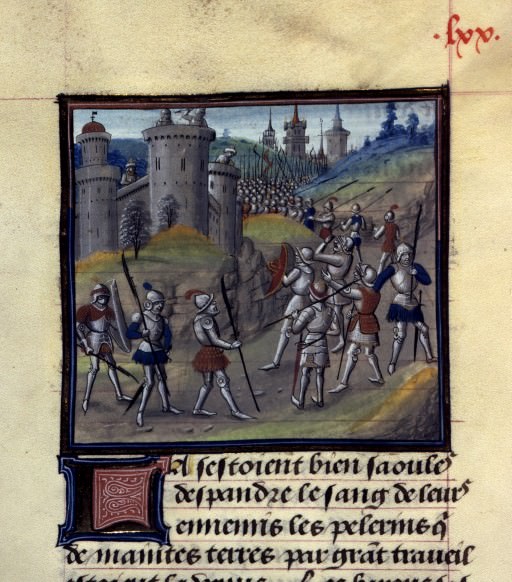 .lxx.
Ja sestoient bien saoules
despandre le sang de leurs
ennemis les pelerins q̃
de maintes terres par grãt traueil